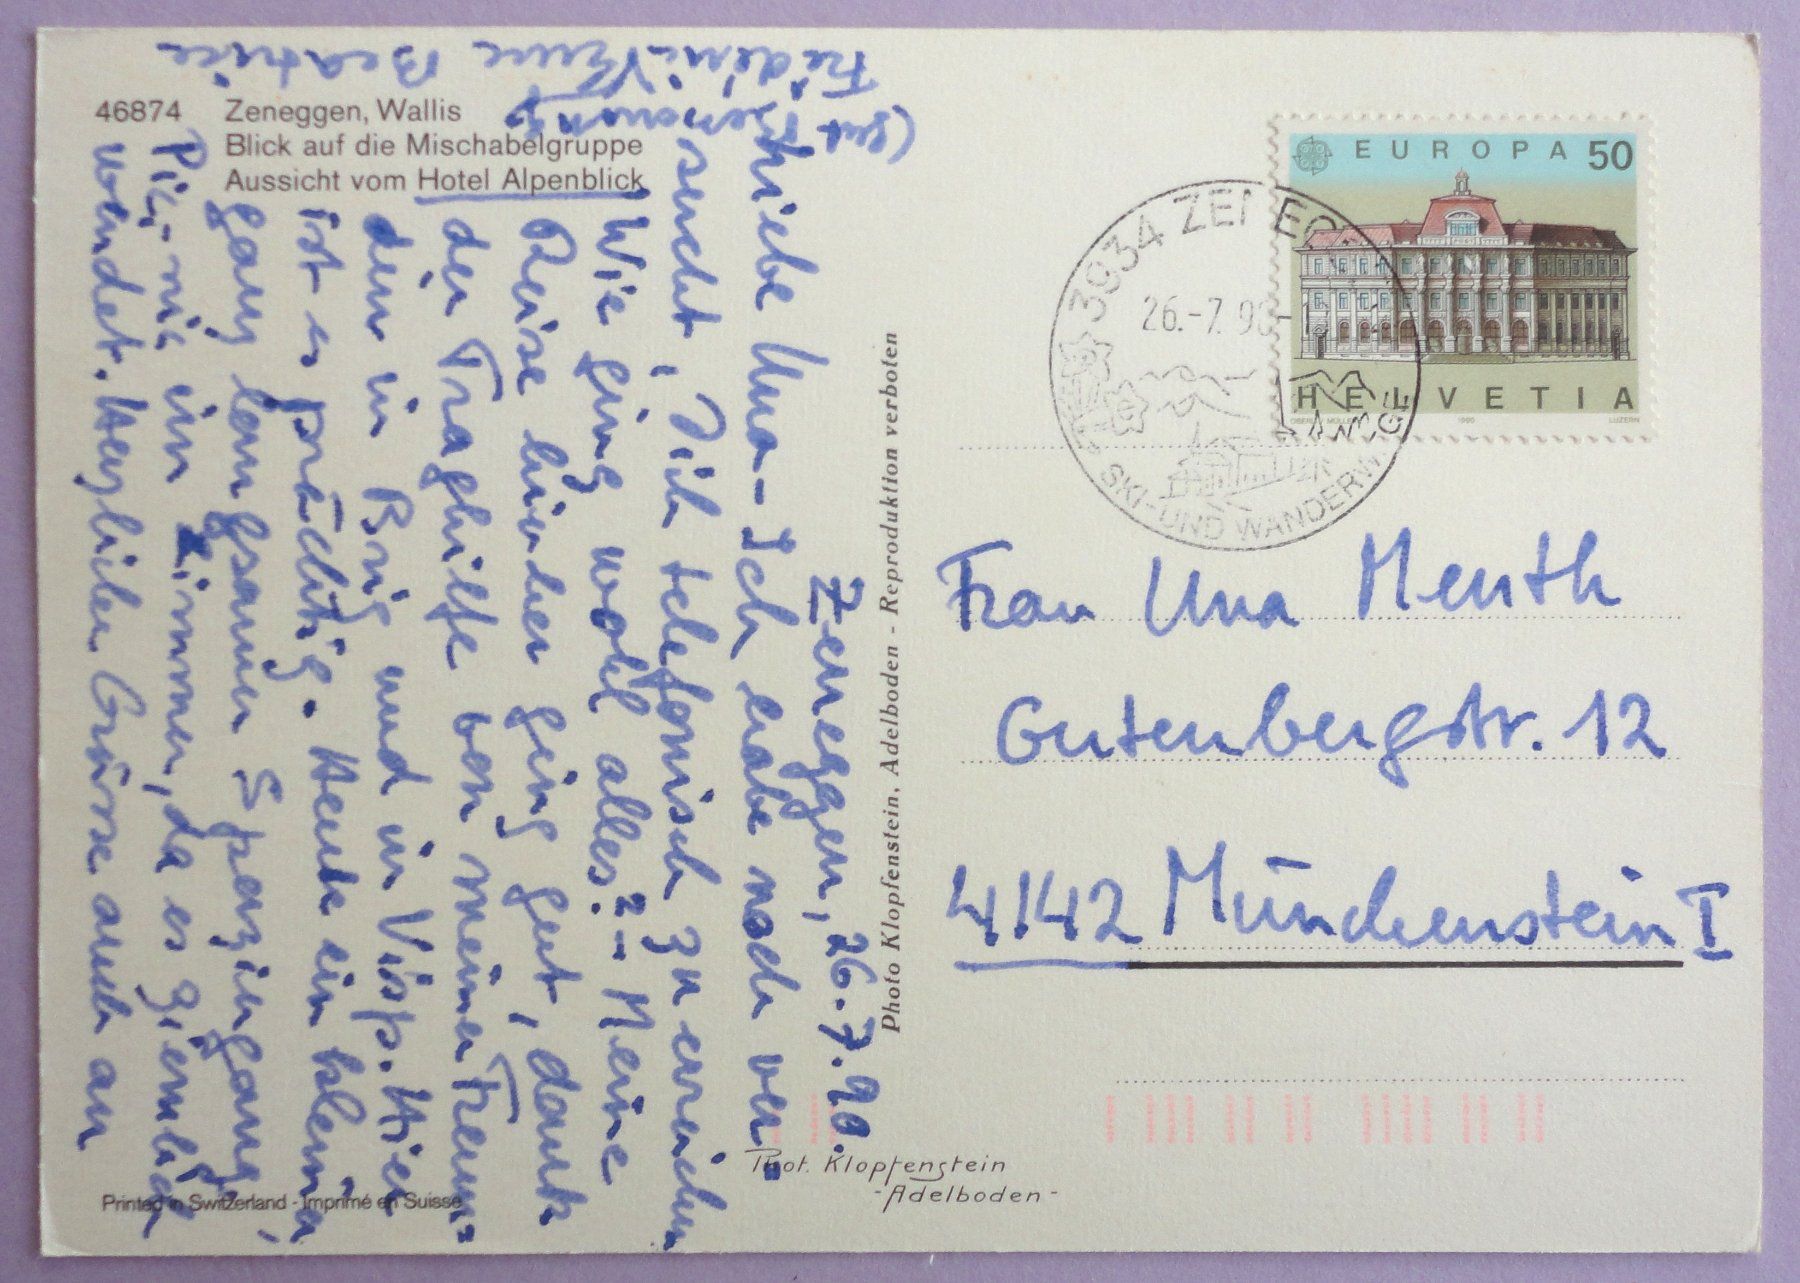 46874 Zeneggen, Wallis
Blick auf die Mischabelgruppe
Aussicht vom Hotel Alpenblick
Zeneggen, 26.7.90.
Liebe Una - Ich habe noch ver-
sucht, Dich telefonisch zu erreichen
Wie ging wohl alles? - Meine
Reise hierher ging gut, dank
der Traghilfe von meiner Freun-
din in Brig und in Visp. Hier
ist es prächtig. Heute ein kleiner
ganz langsamer Spaziergang,
Pic-nic im Zimmer, da es ziemlich
windet. Herzliche Grüsse auch an
Beatrice
Photo Klopfenstein, Adelboden - Reproduktion verboten
Phot. Klopfenstein
- Adelboden -
Printed in Switzerland - Imprimé en Suisse
EUROPA 50
HELVETIA
1990
LUZERN
3934 ZENEGGEN
26.-7.90-
SKI- UND WANDERWEGE
Frau Una Menth
Gutenbergstr. 12
4142 Münchenstein I